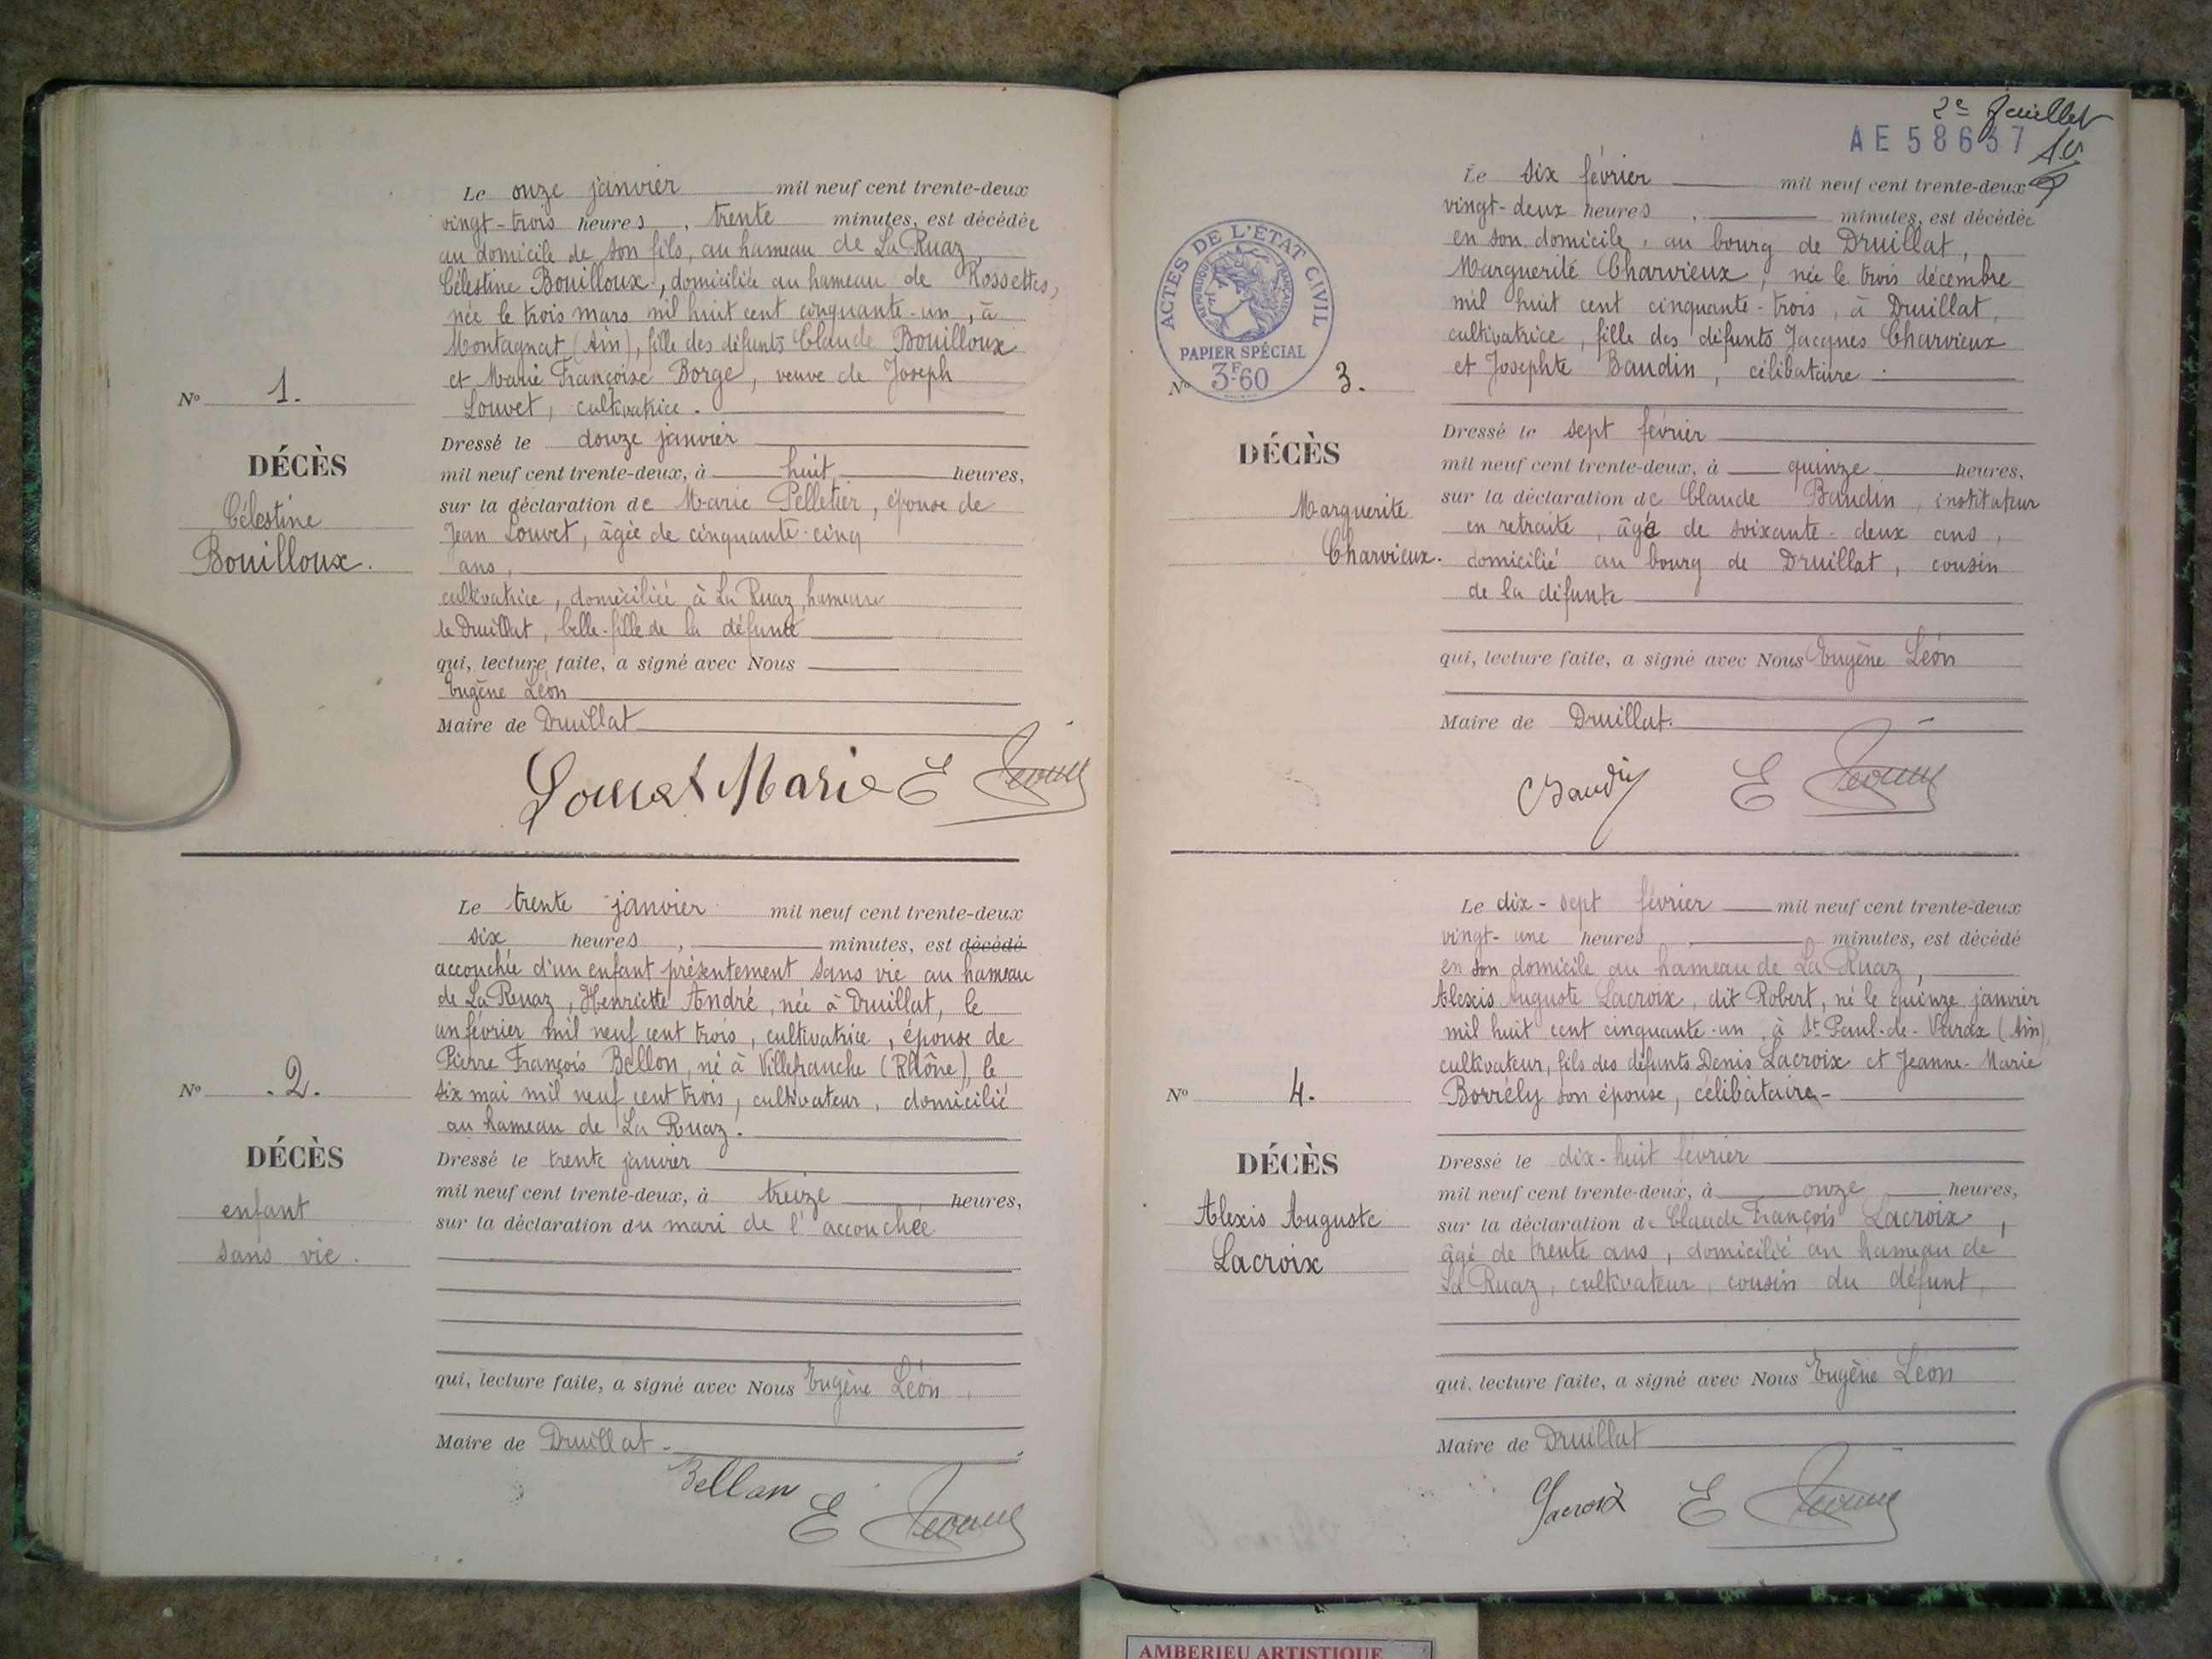 Le onze janvier mil neuf cent trente-deux
vingt-trois heures, trente minutes, est décédée
au domicile de son fils, au hameau de La Ruaz,
Célestine Bouilloux, domiciliée au hameau de Rossettes,
née le trois mars mil huit cent cinquante-un, à
Montagnat (Ain), fille des défunts Claude Bouilloux
et Marie Françoise Borge, veuve de Joseph
Louvet, cultivatrice.
Nº 1.
DÉCÈS
Célestine
Bouilloux.
Dressé le douze janvier
mil neuf cent trente-deux, à huit heures,
sur la déclaration de Marie Pelletier, épouse de
Jean Louvet, âgée de cinquante-cinq
ans,
cultivatrice, domiciliée à La Ruaz, hameau
de Druillat, belle-fille de la défunte
qui, lecture faite, a signé avec Nous
Eugène Léon
Maire de Druillat
Louvet Marie E
Le trente janvier mil neuf cent trente-deux
six heures, minutes, est décédé
accouchée d'un enfant présentement sans vie au hameau
de La Ruaz, Henriette André, née à Druillat, le
un février mil neuf cent trois, cultivatrice, épouse de
Pierre François Bellon, né à Villefranche (Rhône), le
six mai mil neuf cent trois, cultivateur, domicilié
au hameau de La Ruaz.
Nº 2.
DÉCÈS
enfant
sans vie.
Dressé le trente janvier
mil neuf cent trente-deux, à treize heures,
sur la déclaration du mari de l'accouchée
qui, lecture faite, a signé avec Nous Eugène Léon,
Maire de Druillat
Bellon E
2e feuillet
AE 58637
Le six février mil neuf cent trente-deux
vingt-deux heures, minutes, est décédée
en son domicile, au bourg de Druillat,
Marguerite Charvieux, née le trois décembre
mil huit cent cinquante-trois, à Druillat,
cultivatrice, fille des défunts Jacques Charvieux
et Josephte Baudin, célibataire.
ACTES DE L'ÉTAT CIVIL
RÉPUBLIQUE FRANÇAISE
PAPIER SPÉCIAL
3F60
Nº 3.
DÉCÈS
Marguerite
Charvieux.
Dressé le sept février
mil neuf cent trente-deux, à quinze heures,
sur la déclaration de Claude Baudin, instituteur
en retraite, âgé de soixante-deux ans,
domicilié au bourg de Druillat, cousin
de la défunte
qui, lecture faite, a signé avec Nous Eugène Léon
Maire de Druillat.
CBaudin E
Le dix-sept février mil neuf cent trente-deux
vingt-une heures, minutes, est décédé
en son domicile au hameau de La Ruaz,
Alexis Auguste Lacroix, dit Robert, né le quinze janvier
mil huit cent cinquante-un, à St Paul-de-Varax (Ain),
cultivateur, fils des défunts Denis Lacroix et Jeanne-Marie
Borrély son épouse, célibataire-
Nº 4.
DÉCÈS
Alexis Auguste
Lacroix
Dressé le dix-huit février
mil neuf cent trente-deux, à onze heures,
sur la déclaration de Claude François Lacroix,
âgé de trente ans, domicilié au hameau de
La Ruaz, cultivateur, cousin du défunt,
qui, lecture faite, a signé avec Nous Eugène Léon
Maire de Druillat
Lacroix E
AMBERIEU ARTISTIQUE